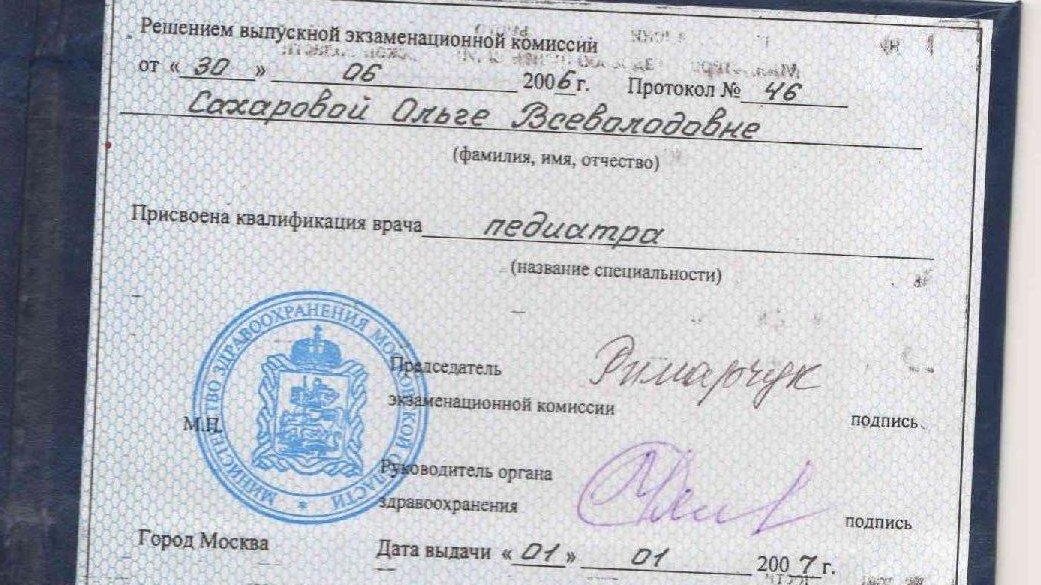 Решением выпускной экзаменационной комиссии
от « 30 » 06 2006 г. Протокол № 46
Сахаровой Ольге Всеволодовне
(фамилия, имя, отчество)
Присвоена квалификация врача педиатра
(название специальности)
МИНИСТЕРСТВО ЗДРАВООХРАНЕНИЯ МОСКОВСКОЙ ОБЛАСТИ
Председатель Римарчук
экзаменационной комиссии
подпись
М.П.
Руководитель органа
здравоохранения
подпись
Город Москва Дата выдачи « 01 » 01 2007 г.